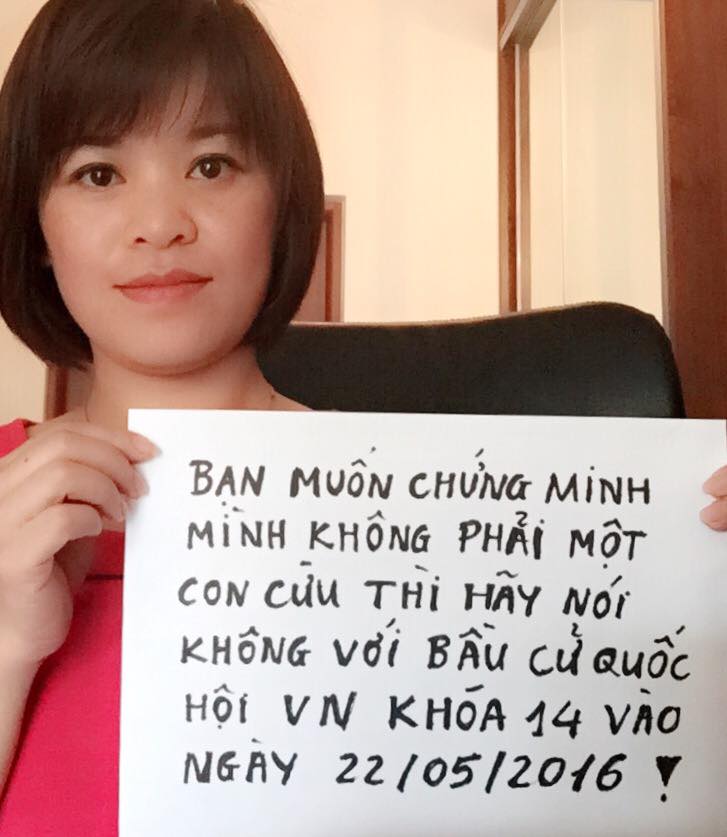 BẠN MUỐN CHỨNG MINH
MÌNH KHÔNG PHẢI MỘT
CON CỪU THÌ HÃY NÓI
KHÔNG VỚI BẦU CỬ QUỐC
HỘI VN KHÓA 14 VÀO
NGÀY 22/05/2016 !